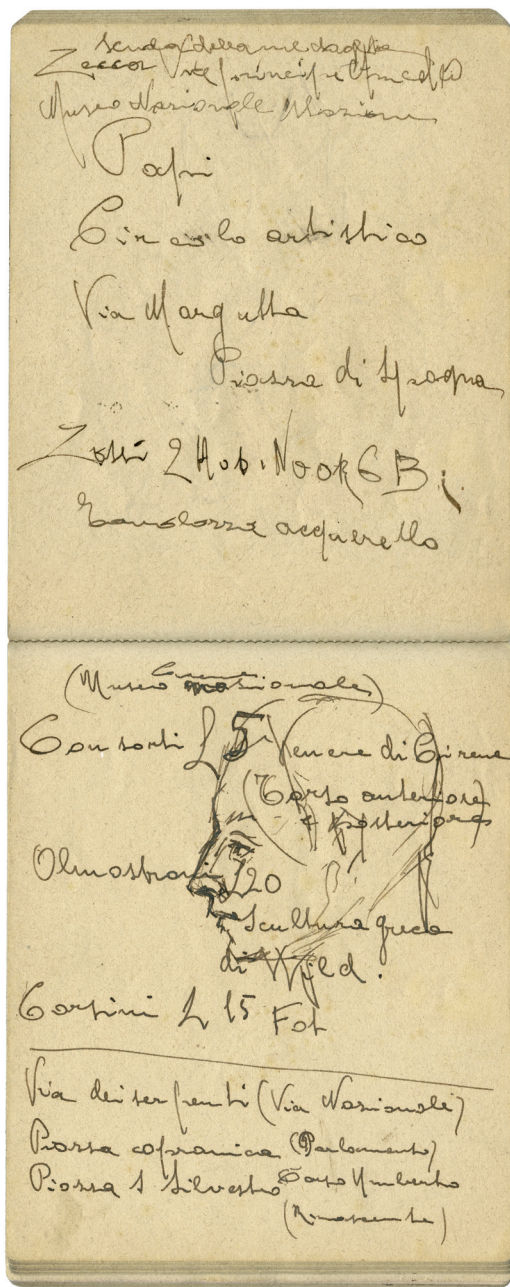 scuola della medaglia
Zecca V. le principe Umberto
Museo Nazionale
Papi
Circolo artistico
Via Margutta
Piazza di Spagna
2 Hob. Nook 6 B.
acquerello
(Museo nazionale)
Consorti L 5 Venere di Cirene
(Torso anteriore
e posteriore)
L 20
Scultura greca
di Wjld.
Corsini L 15 Fot
Via dei serpenti (Via Nazionale)
Piazza capranica (Parlamento)
Piazza S Silvestro Corso Umberto
(Rinascente)